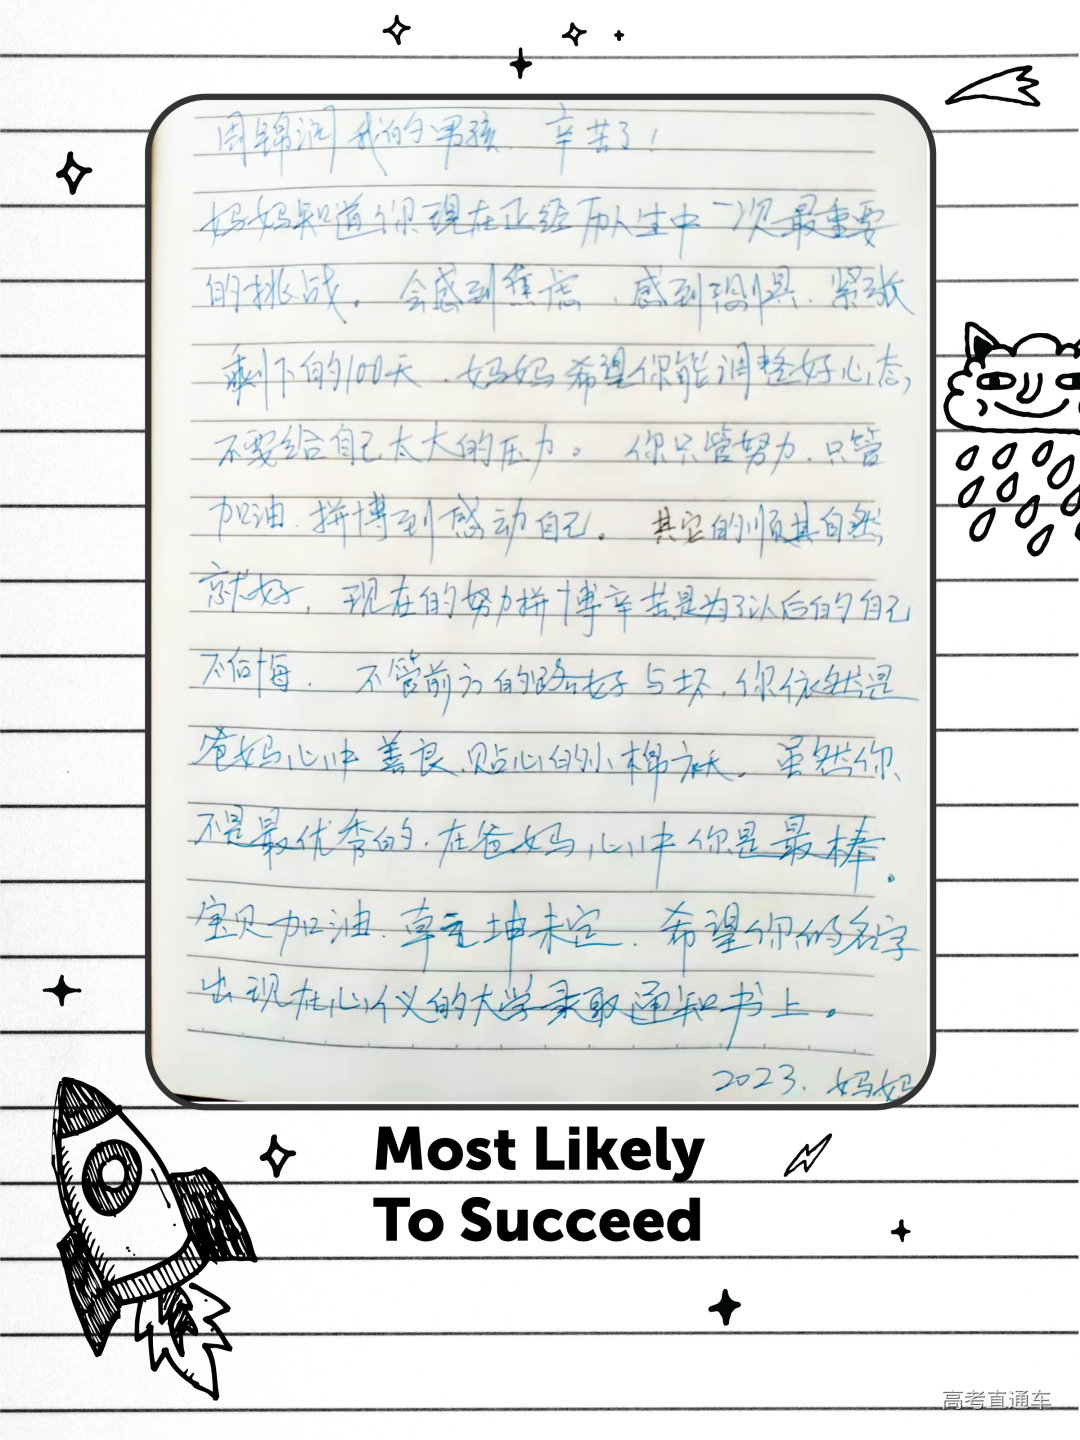 周锦润我的男孩、辛苦了！
妈妈知道你现在正经历人生中一次最重要
的挑战。会感到焦虑、感到恐惧、紧张
剩下的100天、妈妈希望你能调整好心态，
不要给自己太大的压力。你只管努力、只管
加油、拼博到感动自己。其它的顺其自然
就好，现在的努力拼博辛苦是为了以后的自己
不后悔. 不管前方的路好与坏，你依然是
爸妈心中善良、贴心的小棉袄。虽然你
不是最优秀的.在爸妈心中你是最棒。
宝贝加油. 坤未定. 希望你的名字
出现在心仪的大学录取通知书上。
2023. 妈妈
Most Likely
To Succeed
高考直通车